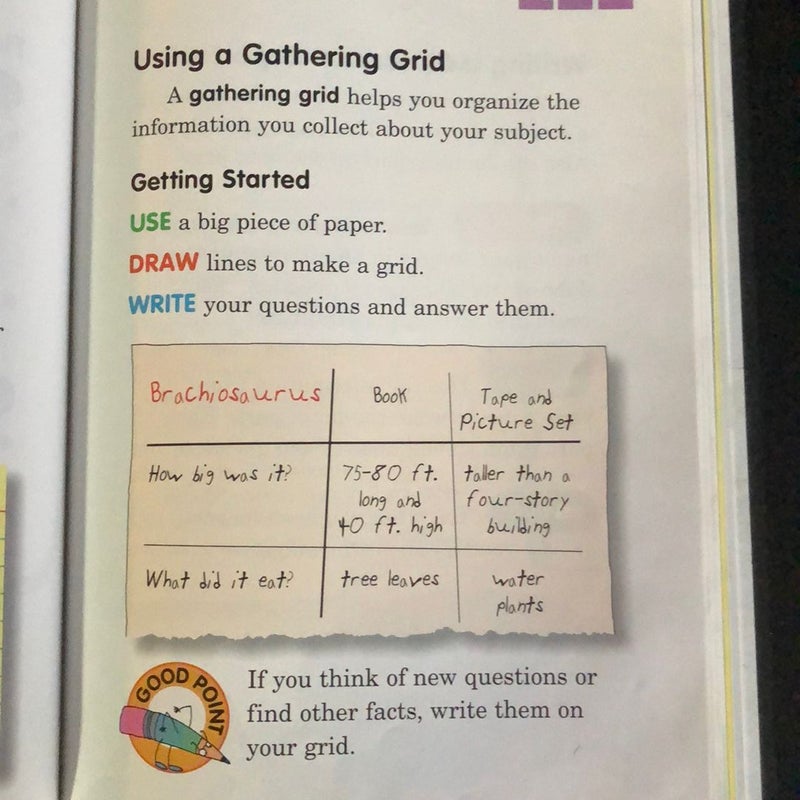 Using a Gathering Grid
A gathering grid helps you organize the
information you collect about your subject.
Getting Started
USE a big piece of paper.
DRAW lines to make a grid.
WRITE your questions and answer them.
Brachiosaurus
Book
Tape and
Picture Set
How big was it?
75-80 ft.
long and
40 ft. high
taller than a
four-story
building
What did it eat?
tree leaves
water
plants
GOOD POINT
If you think of new questions or
find other facts, write them on
your grid.